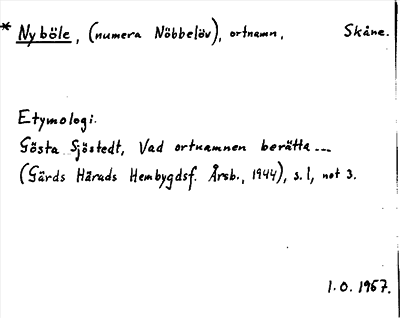 * Nyböle, (numera Nöbbelöv), ortnamn, Skåne.
Etymologi.
Gösta Sjöstedt, Vad ortnamnen berätta ---
(Gärds Härads Hembygdsf. Årsb., 1944), s. 1, not 3.
1.O. 1957.